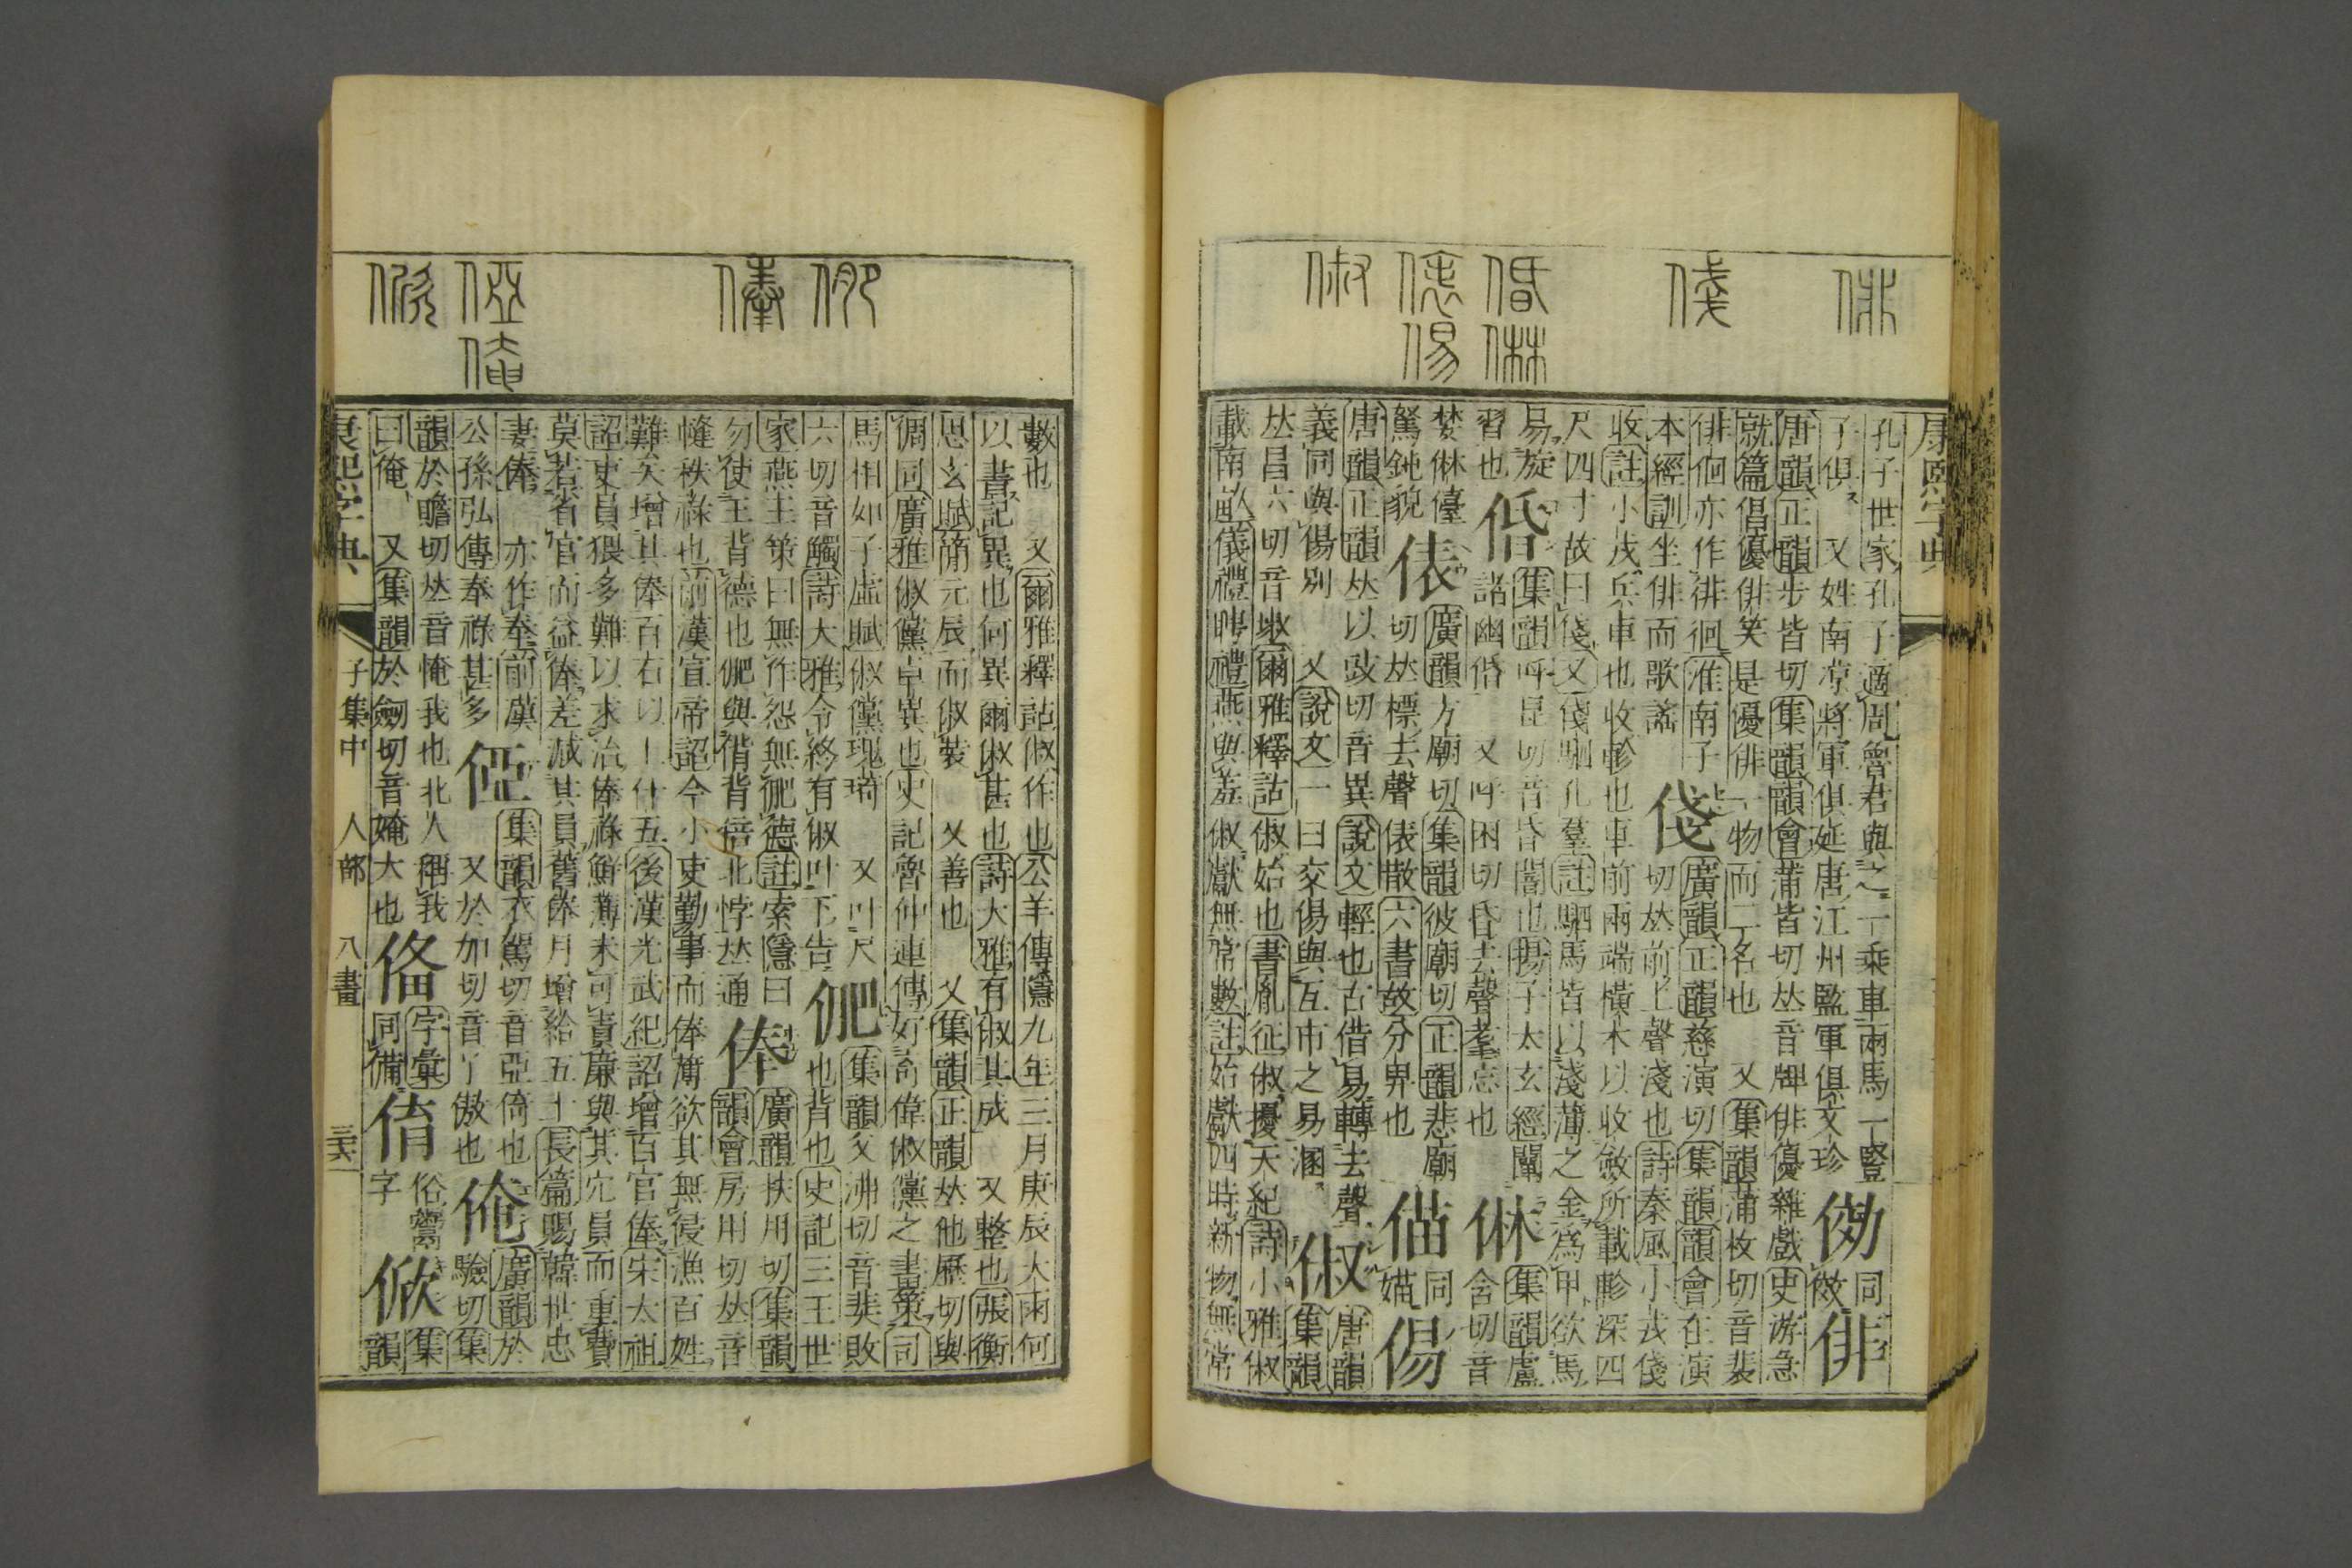 康熙字典
孔子世家孔子適周魯君與之一乘車兩馬一豎
子俱 又姓南涼將軍俱延唐江州監軍俱文珍 㑘同傚俳
唐韻正韻步皆切集韻韻會蒲皆切𠀤音牌俳優雜戲史游急
就篇倡優俳笑是優俳一物而二名也 又集韻蒲枚切音裴
俳佪亦作徘徊淮南子
本經訓坐俳而歌謠 俴廣韻正韻慈演切集韻韻會在演
切𠀤前上聲淺也詩秦風小戎俴
收註小戎兵車也收軫也車前兩端橫木以收斂所載軫深四
尺四寸故曰俴又俴駟孔羣註駟馬皆以淺薄之金爲甲欲馬
易旋
習也 偖集韻呼昆切音昏闇也揚子太玄經闇
諸幽偖 又呼困切昏去聲耄忘也 㑣集韻盧
含切音
婪㑣儓
駑鈍貌 俵廣韻方廟切集韻彼廟切正韻悲廟
切𠀤標去聲俵散六書故分畀也 㑤同媌㑥
唐韻正韻𠀤以豉切音異說文輕也古借易轉去聲
義同與傷別 又說文一曰交㑥與互市之易溷 俶唐韻集韻
𠀤昌六切音埱爾雅釋詁俶始也書胤征俶擾天紀詩小雅俶
載南畝儀禮聘禮燕與羞俶獻無常數註始獻四時新物無常
數也 又爾雅釋詁俶作也公羊傳隱九年三月庚辰大雨何
以書記異也何異爾俶甚也詩大雅有俶其成 又整也張衡
思玄賦簡元辰而俶裝 又善也 又集韻正韻𠀤他歷切與
倜同廣雅俶儻卓異也史記魯仲連傳好奇偉俶儻之畫策司
馬相如子虛賦俶儻瑰琦 又叶尺
六切音觸詩大雅令終有俶叶下告 俷集韻父沸切音屝敗
也背也史記三王世
家燕王策曰無作怨無俷德註索隱曰
勿使王背德也俷與偝背倍北悖𠀤通 俸廣韻扶用切集韻
韻會房用切𠀤音
幓秩祿也前漢宣帝詔今小吏勤事而俸薄欲其無侵漁百姓
難矣增其俸百石以上什五後漢光武紀詔增百官俸宋太祖
詔吏員猥多難以求治俸祿鮮薄未可責廉與其冗員而重費
莫若省官而益俸差減其員舊俸月增給五十長篇賜韓世忠
妻俸 亦作奉前漢
公孫弘傳奉祿甚多 俹集韻衣駕切音亞倚也
又於加切音丫傲也 俺廣韻於
驗切集
韻於贍切𠀤音㤿我也北人稱我
曰俺 又集韻於劒切音㛪大也 俻字彙
同備 俼俗鬻
字 俽集
韻
康熙字典 子集中 人部 八畫 三六